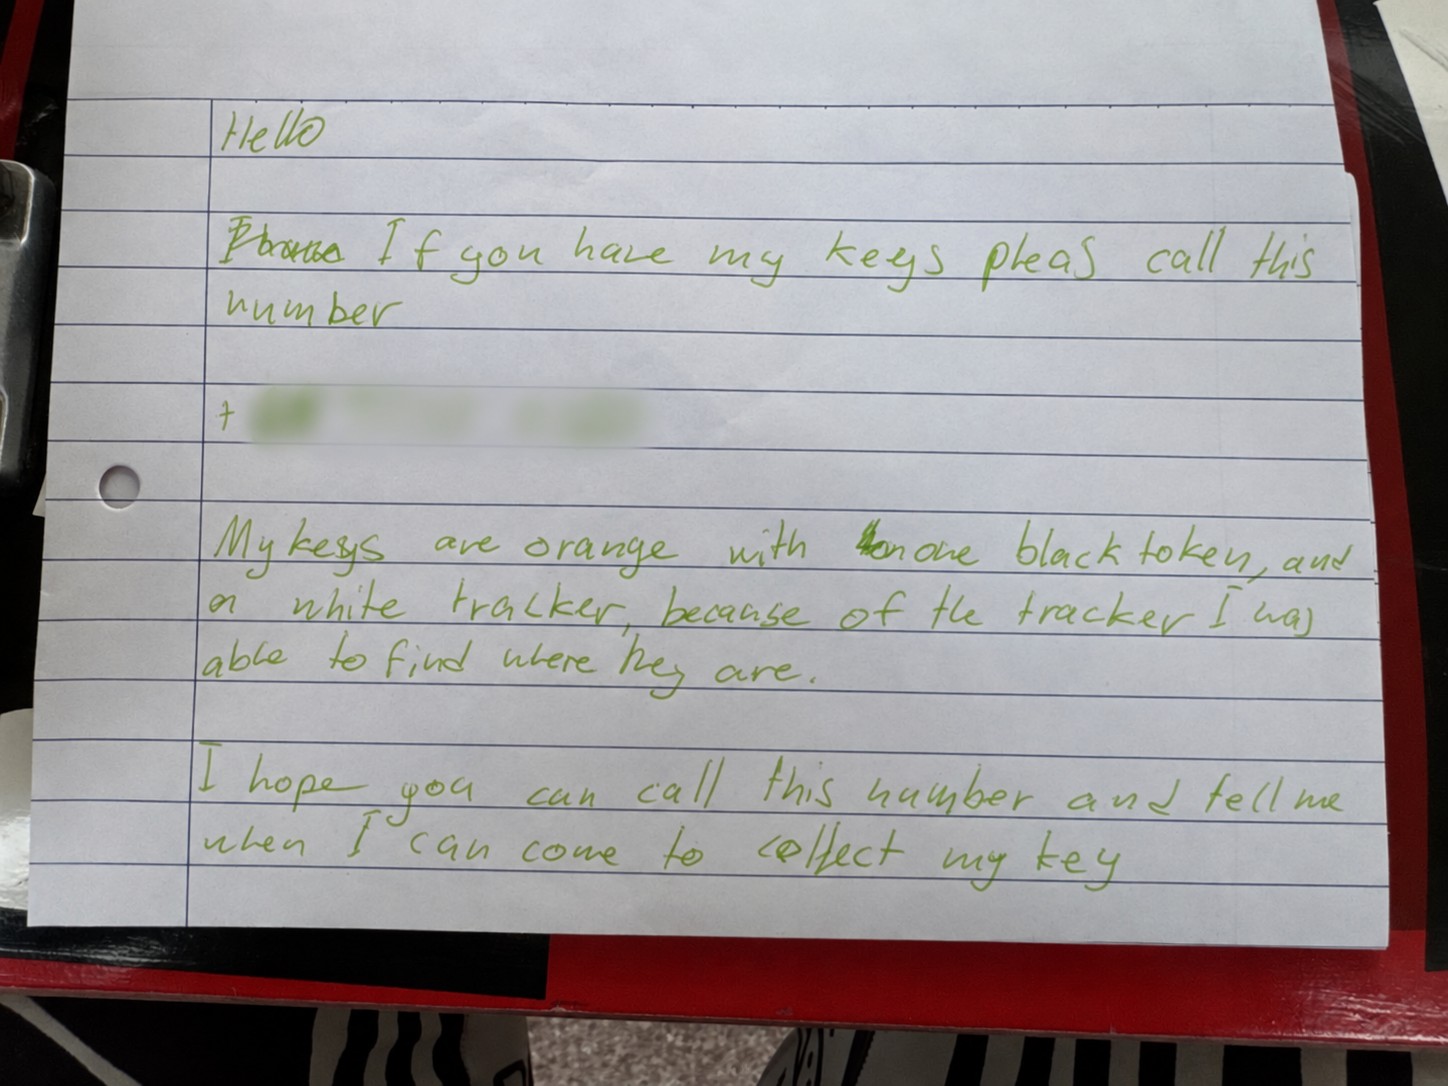 Hello
If you have my keys pleas call this
number
+
My keys are orange with one black token, and
a white tracker, because of the tracker I was
able to find where they are.
I hope you can call this number and tell me
when I can come to collect my key